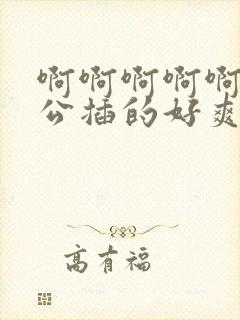 啊啊啊啊啊
公插的好爽
高有福